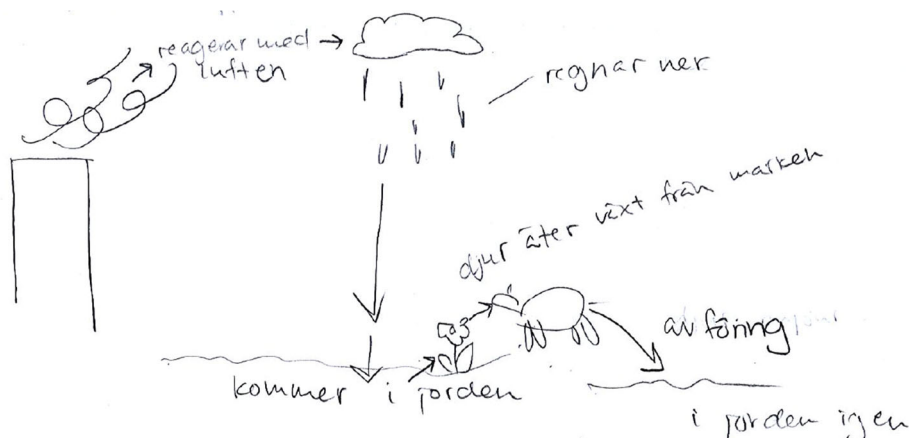 reagerar med
luften
regnar ner
djur äter växt från marken
avföring
kommer i jorden
i jorden igen